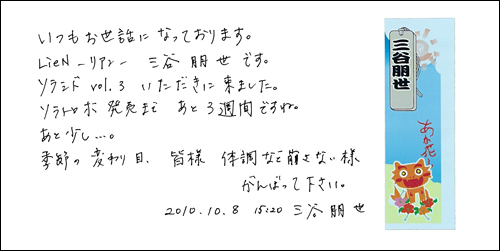 いつもお世話になっております。
LieN ーリアンー 三谷 朋世 です。
ソラシド vol.3 いただきに来ました。
発売まで あと3週間ですね。
あと少し…。
季節の変わり目、皆様 体調など崩さない様
がんばって下さい。
2010.10.8 15:20 三谷 朋世
三谷朋世